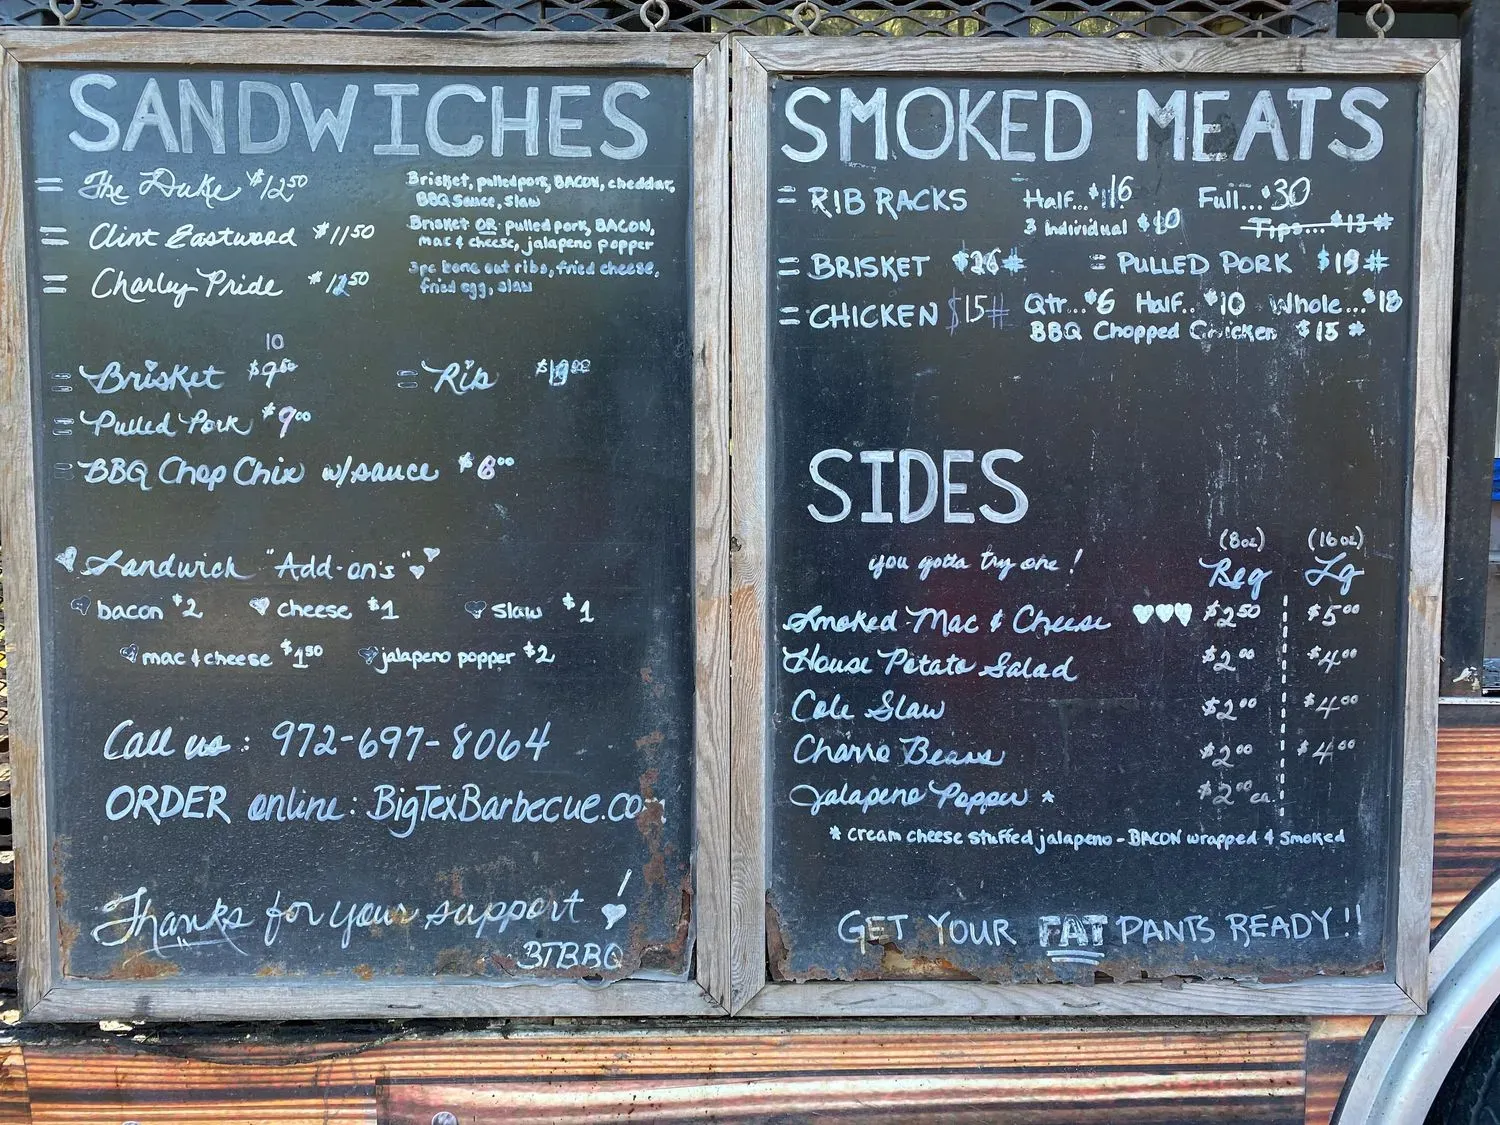 SANDWICHES
= The Duke $12.50 Brisket, pulled pork, BACON, cheddar,
BBQ Sauce, slaw
= Clint Eastwood $11.50 Brisket OR pulled pork, BACON,
mac & cheese, jalapeno popper
= Charley Pride $12.50 3pc bone out ribs, fried cheese,
fried egg, slaw
10
= Brisket $9.50 = Rib
= Pulled Pork $9.00
= BBQ Chop Chix w/sauce $8.00
Sandwich "Add-on's"
bacon $2 cheese $1 slaw $1
mac & cheese $1.50 jalapeno popper $2
Call us: 972-697-8064
ORDER online: BigTexBarbecue.com
Thanks for your support!
BTBBQ
SMOKED MEATS
= RIB RACKS Half...$16 Full...$30
3 individual $10 Tips...$13#
= BRISKET $26# = PULLED PORK $19#
= CHICKEN $15# Qtr...$6 Half..$10 Whole...$18
BBQ Chopped Chicken $15#
SIDES
(8oz) (16oz)
you gotta try one! Reg Lg
Smoked Mac & Cheese $2.50 $5.00
House Potato Salad $2.00 $4.00
Cole Slaw $2.00 $4.00
Charro Beans $2.00 $4.00
Jalapeno Popper * $2.00 ea
* cream cheese stuffed jalapeno - BACON wrapped & smoked
GET YOUR FAT PANTS READY!!